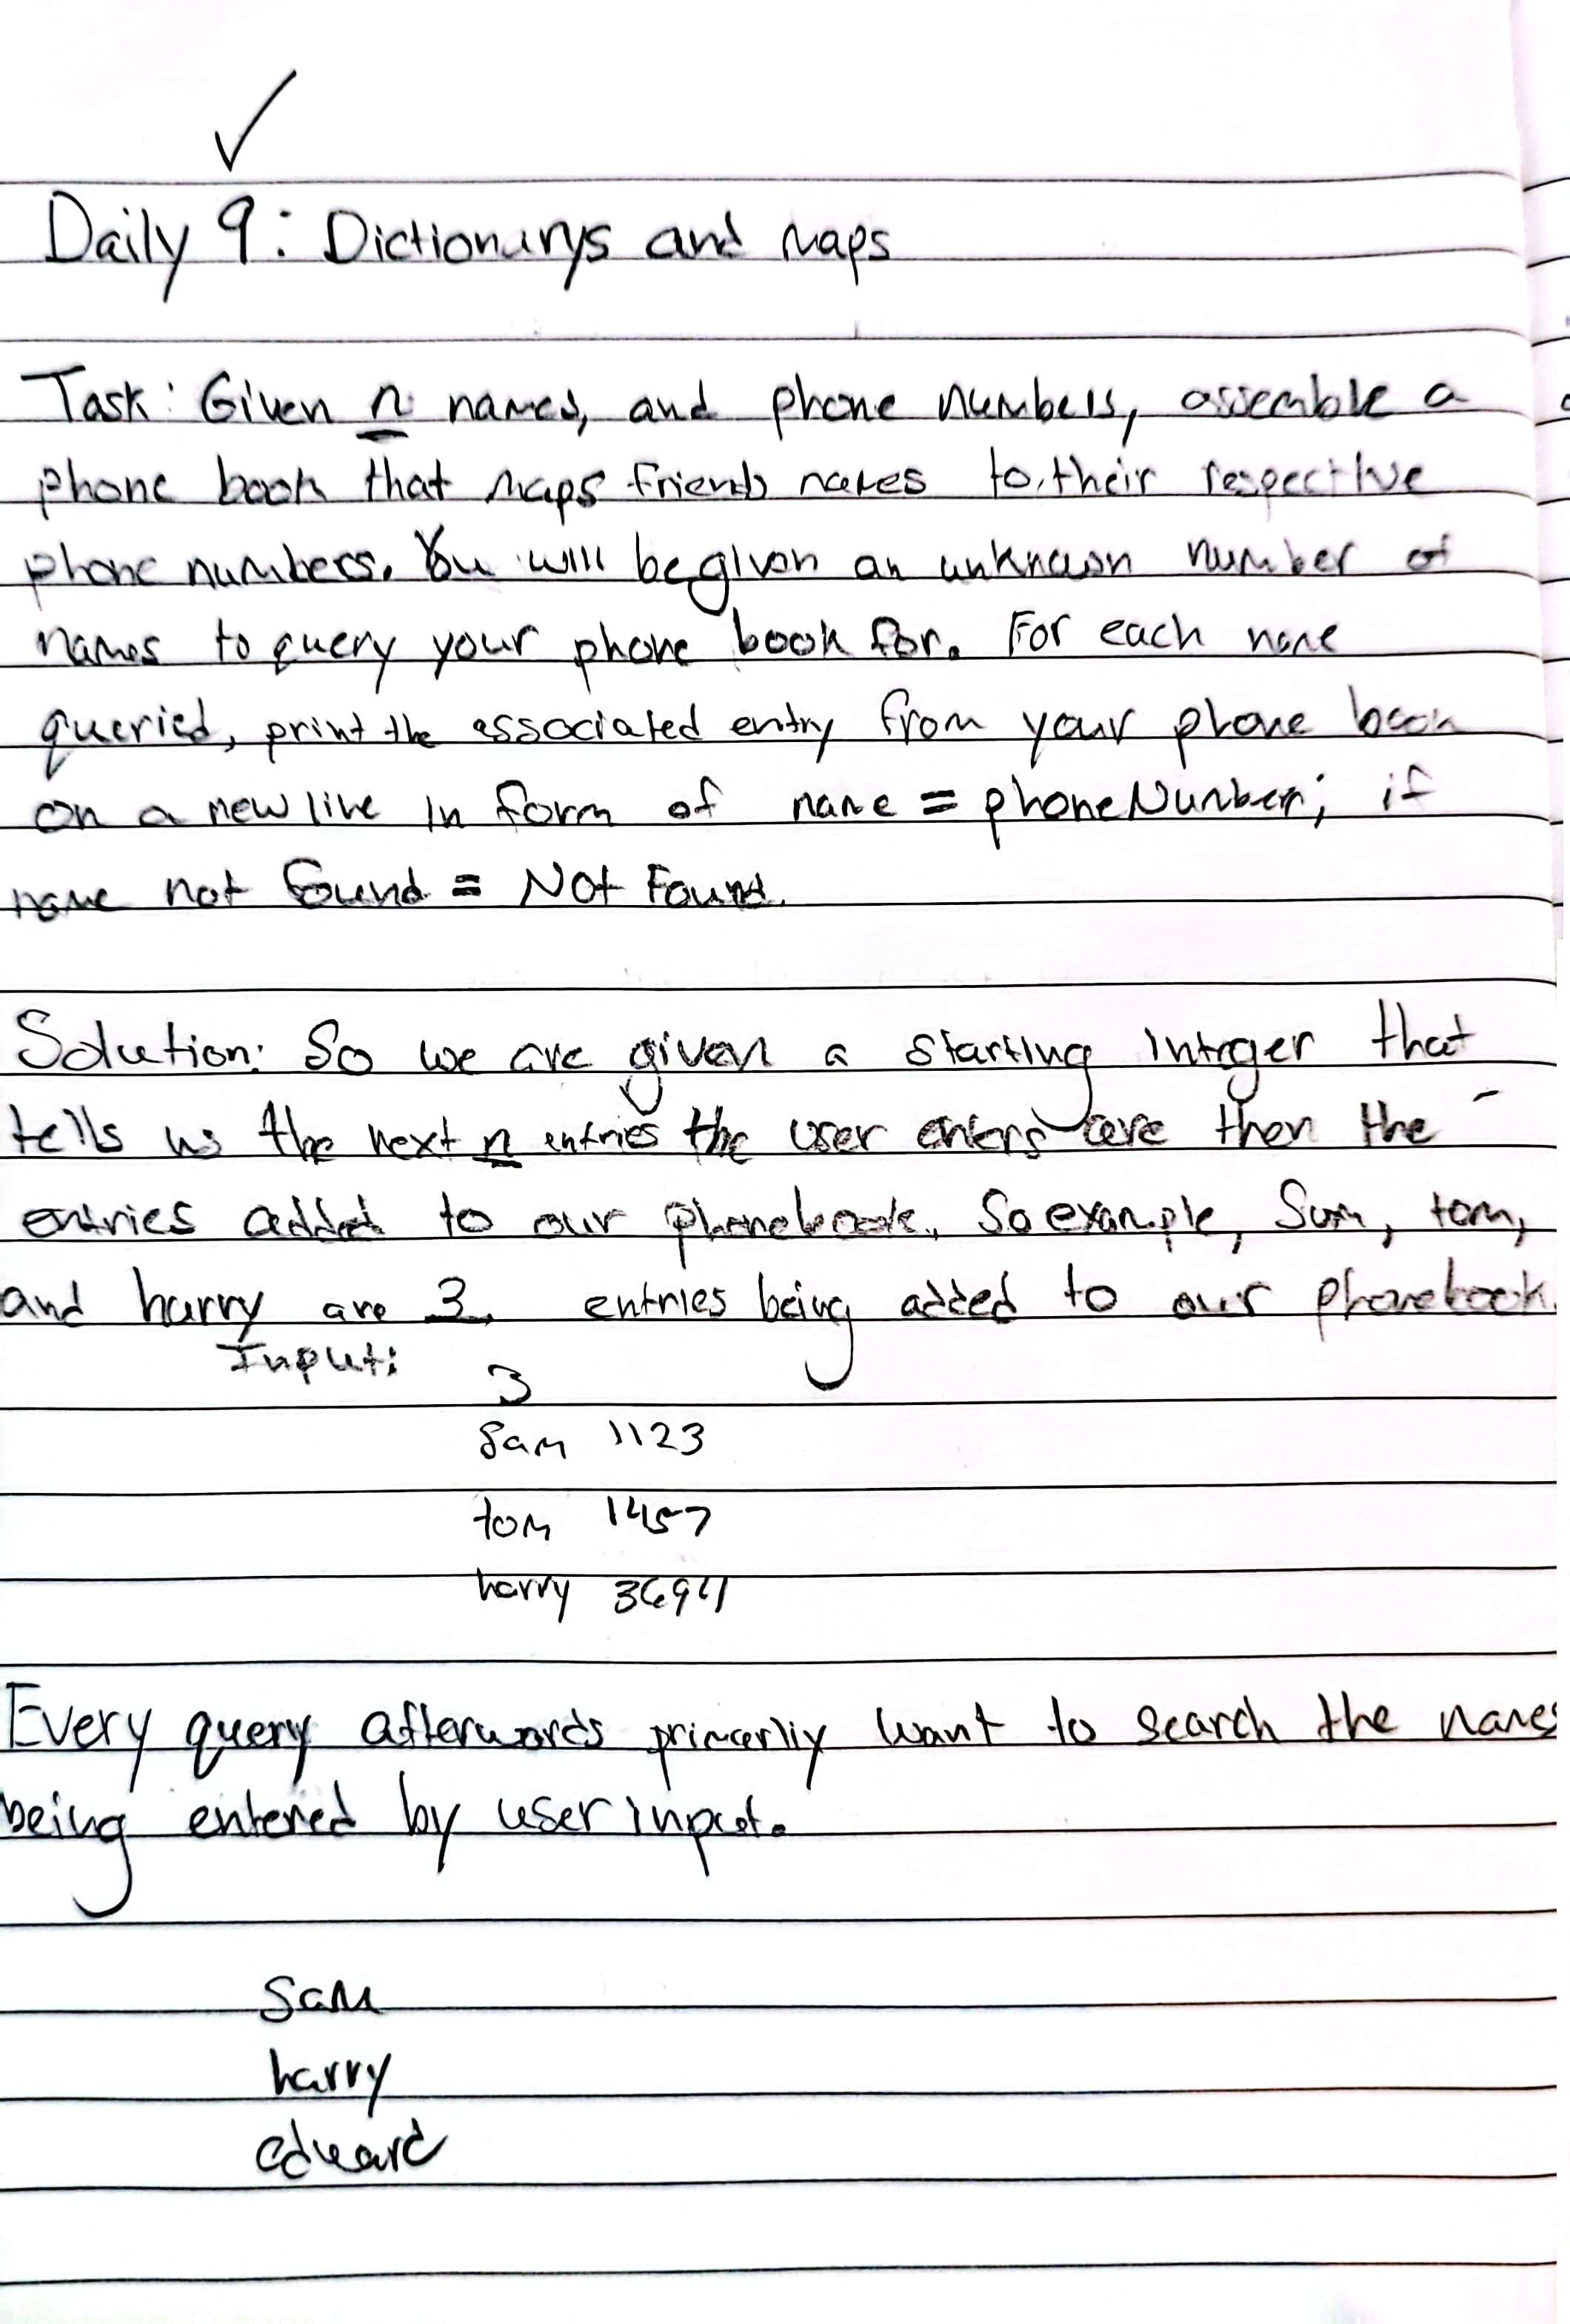 Daily 9: Dictionarys and Maps
Task: Given n names, and phone numbers, assemble a
phone book that maps friends names to their respective
phone numbers. You will be given an unknown number of
names to query your phone book for. For each name
queried, print the associated entry from your phone book
on a new line in form of name = phoneNumber; if
name not found = Not Found.
Solution: So we are given a starting integer that
tells us the next n entries the user enters are then the
entries added to our phonebook. So example, Sam, tom,
and harry are 3 entries being added to our phonebook.
Input:
3
Sam 1123
tom 1457
harry 3694
Every query afterwords primarliy want to search the names
being entered by user input.
Sam
harry
edward